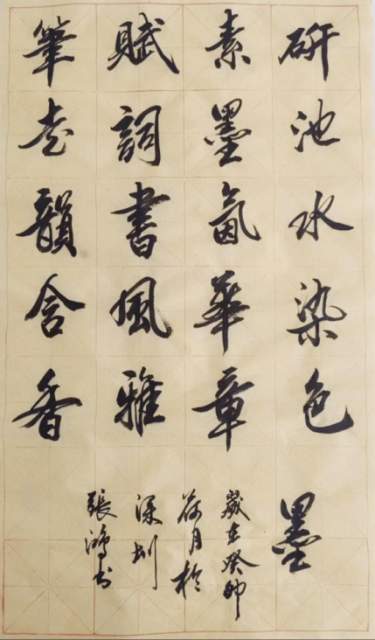 研池水染色
素墨氤華章
賦詞書風雅
筆老韻含香
墨
歲在癸卯
荷月於
深圳
張鴻書